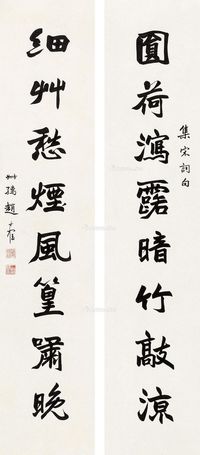 圓荷瀉露暗竹敲涼
集宋詞句
細艸愁煙風篁嘯晚
趙